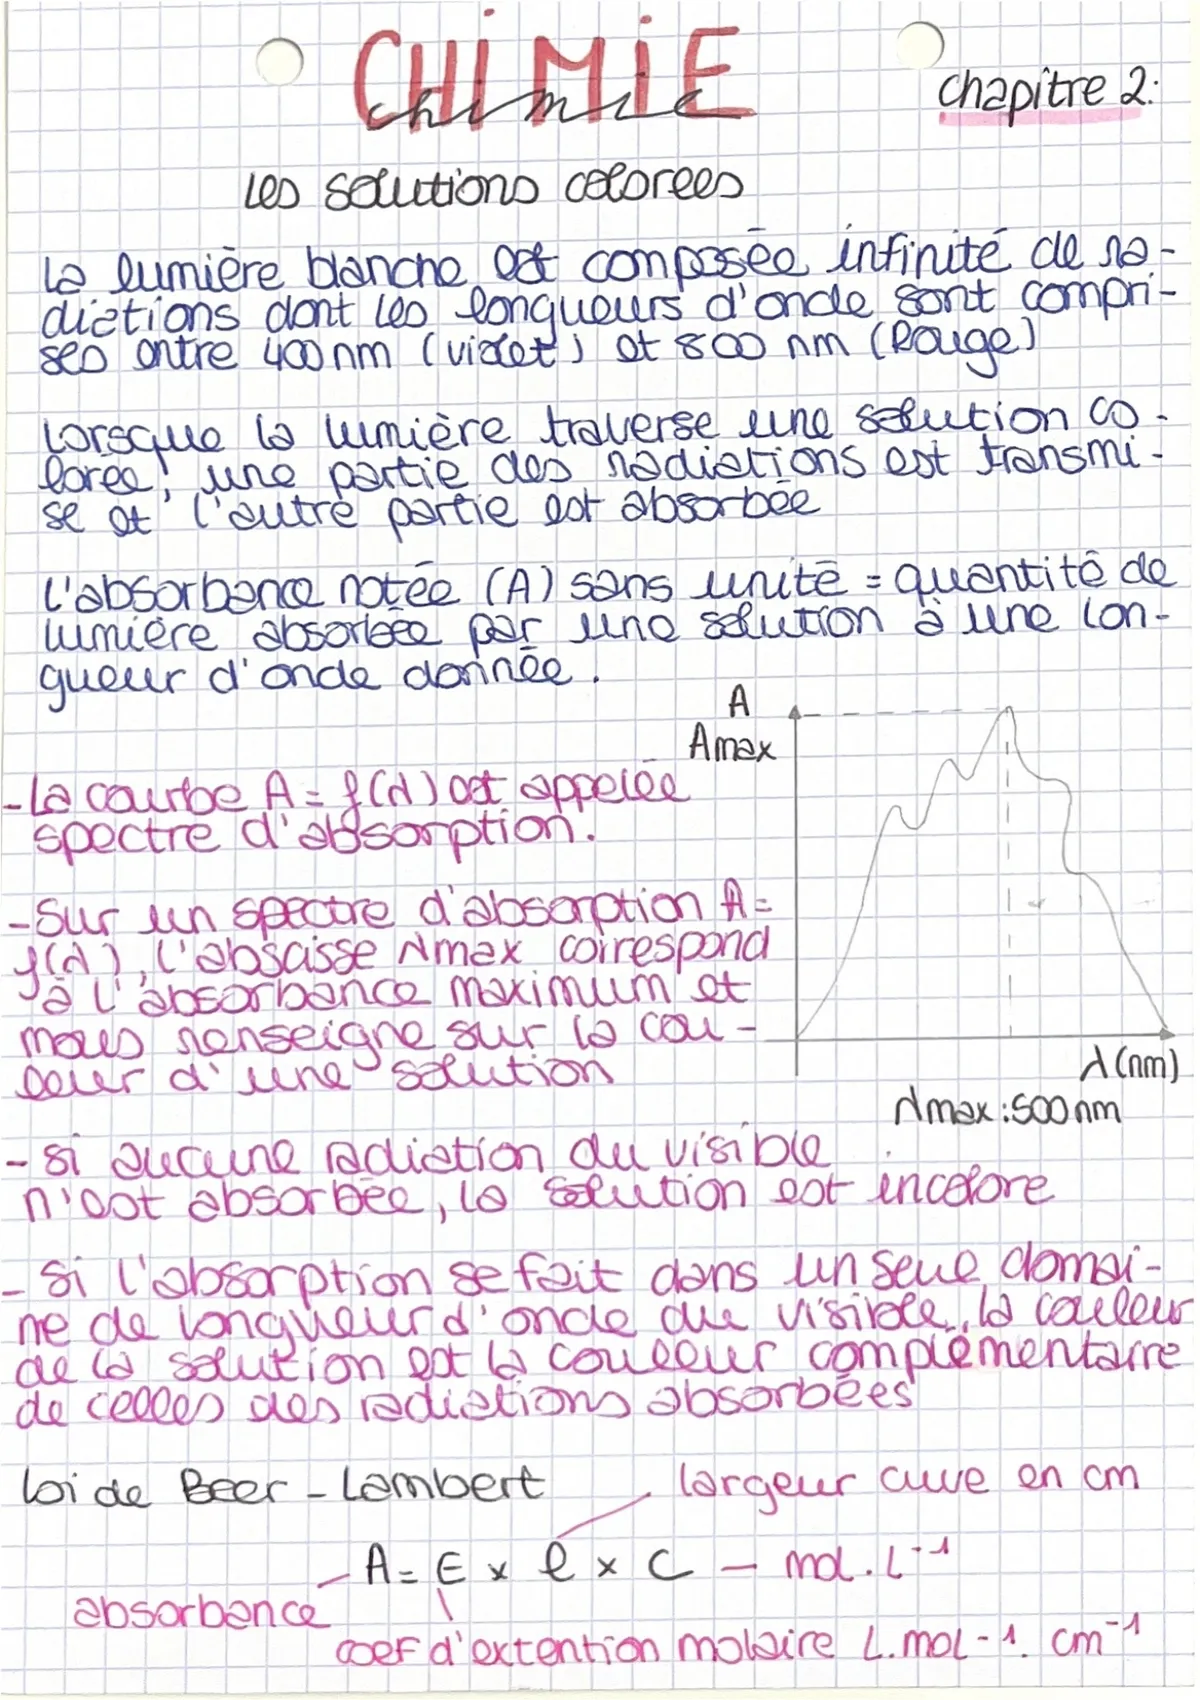 CHIMIE
chimie
chapitre 2:
Les solutions colorees
La lumière blanche est composée infinité de ra-
diations dont les longueurs d'onde sont compri-
ses entre 400 nm (violet) et 800 nm (Rouge)
Lorsque la lumière traverse une solution co-
lorée, une partie des radiations est transmi-
se et l'autre partie est absorbée
L'absorbance notée (A) sans unité = quantité de
lumière absorbée par une solution à une lon-
gueur d'onde donnée.
A
Amax
- La courbe A = f(λ) est appelée
spectre d'absorption.
- Sur un spectre d'absorption A =
f(λ), l'abscisse λmax correspond
à l'absorbance maximum et
nous renseigne sur la cou-
leur d'une solution
λ (nm)
λmax : 500 nm
- si aucune radiation du visible
n'est absorbée, la solution est incolore
- Si l'absorption se fait dans un seul domai-
ne de longueur d'onde du visible, la couleur
de la solution est la couleur complémentaire
de celles des radiations absorbées
loi de Beer - Lambert
largeur cuve en cm
A = E × l × C - mol. L⁻¹
absorbance
coef d'extention molaire L.mol-1. cm⁻¹